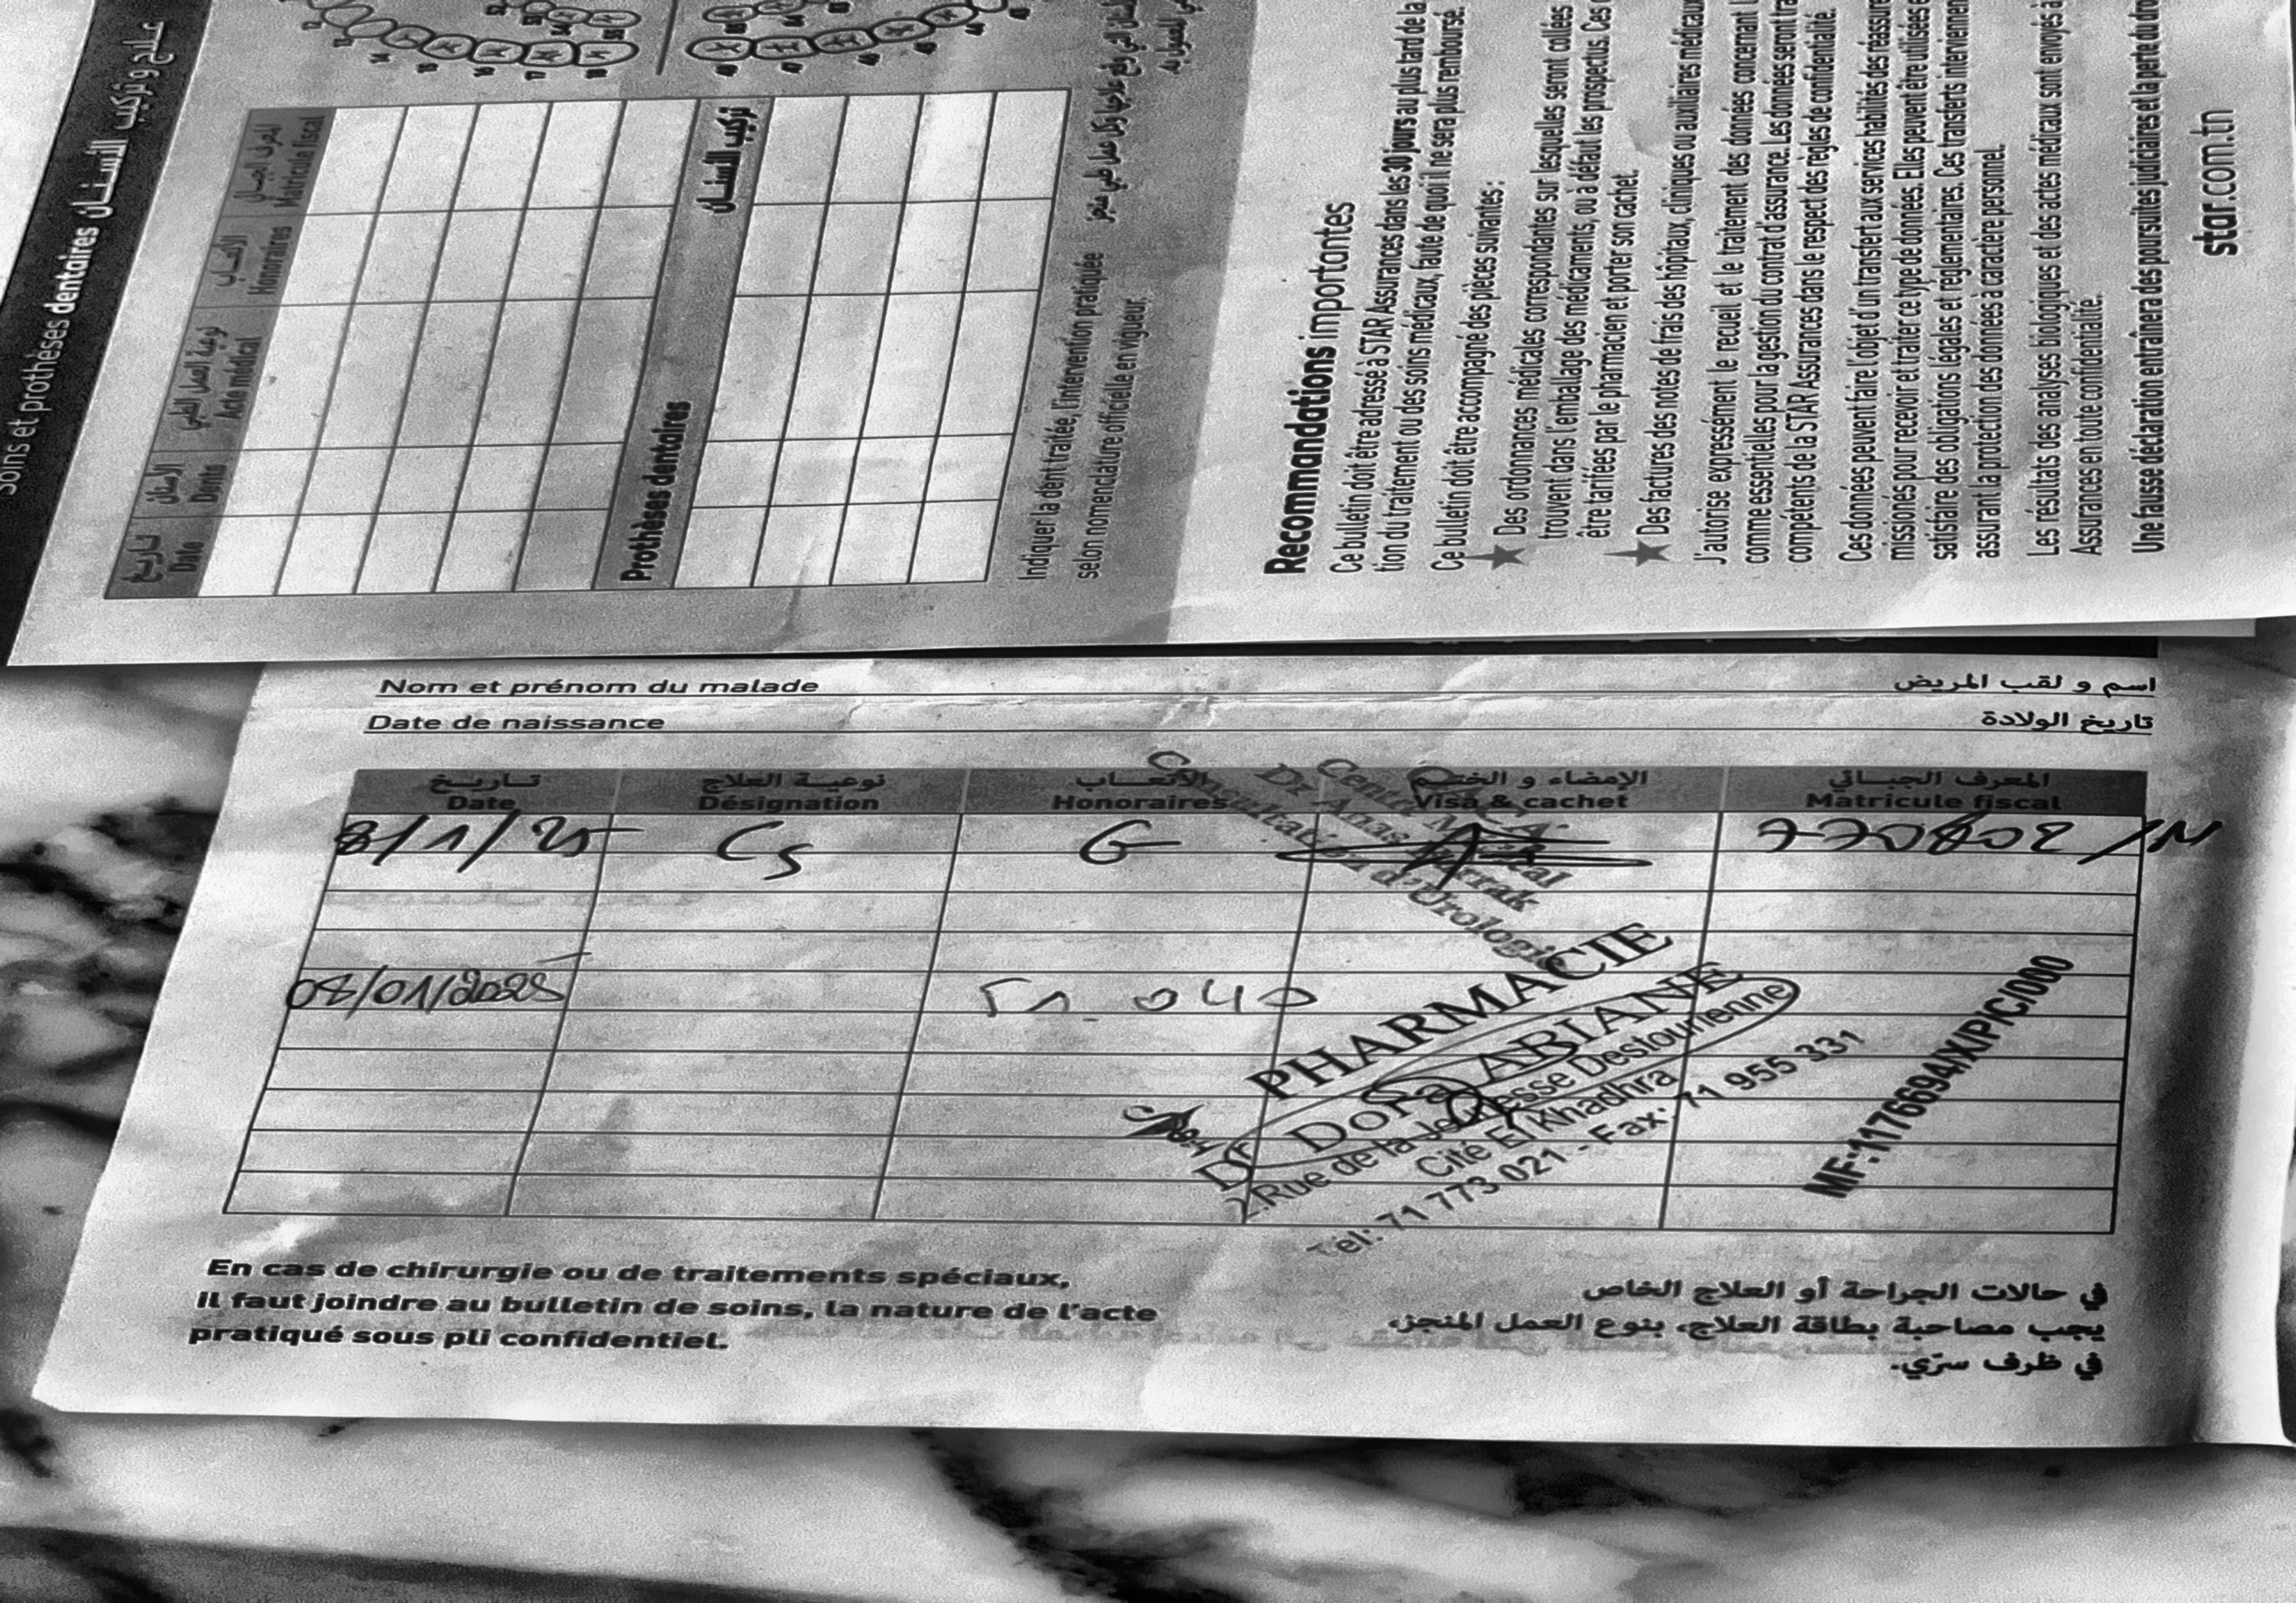 Soins et prothèses dentaires علاج و تركيب الأسنان
تاريخ الأسنان نوعية العمل الطبي الأتعاب المعرف الجبائي
Date Dents Acte médical Honoraires Matricule fiscal
Prothèses dentaires تركيب الأسنان
Indiquer la dent traitée, l'intervention pratiquée
selon nomenclature officielle en vigueur.
Recommandations importantes
Ce bulletin doit être adressé à STAR Assurances dans les 30 jours au plus tard de la
tion du traitement ou des soins médicaux, faute de quoi il ne sera plus remboursé.
Ce bulletin doit être accompagné des pièces suivantes :
Des ordonnances médicales correspondantes sur lesquelles seront collées
trouvent dans l'emballage des médicaments, ou à défaut les prospectus. Ces
être tarifées par le pharmacien et porter son cachet.
Des factures des notes de frais des hôpitaux, cliniques ou auxiliaires médicaux
J'autorise expressément le recueil et le traitement des données concernant
comme essentielles pour la gestion du contrat d'assurance. Les données seront
compétents de la STAR Assurances dans le respect des règles de confidentialité.
Ces données peuvent faire l'objet d'un transfert aux services habilités des
missionés pour recevoir et traiter ce type de données. Elles peuvent être utilisées
satisfaire des obligations légales et réglementaires. Ces transferts
assurant la protection des données à caractère personnel.
Les résultats des analyses biologiques et des actes médicaux sont envoyés à
Assurances en toute confidentialité.
Une fausse déclaration entraînera des poursuites judiciaires et la perte du
star.com.tn
Nom et prénom du malade اسم و لقب المريض
Date de naissance تاريخ الولادة
تـاريـخ نوعيـة العـلاج الأتعـاب الإمضاء و الختـم المعرف الجبـائي
Date Désignation Honoraires Visa & cachet Matricule fiscal
8/1/25 Cs G
Consultation d'Urologie
08/01/2025 51.040
PHARMACIE
Dr Dora ABIANE
2.Rue de la Jeunesse Destourienne
Cité El Khadhra
Tel: 71 773 021 - Fax: 71 955 331
MF:1176694/X/P/C/000
En cas de chirurgie ou de traitements spéciaux,
il faut joindre au bulletin de soins, la nature de l'acte
pratiqué sous pli confidentiel.
في حالات الجراحة أو العلاج الخاص
يجب مصاحبة بطاقة العلاج، بنوع العمل المنجز،
في ظرف سرّي.